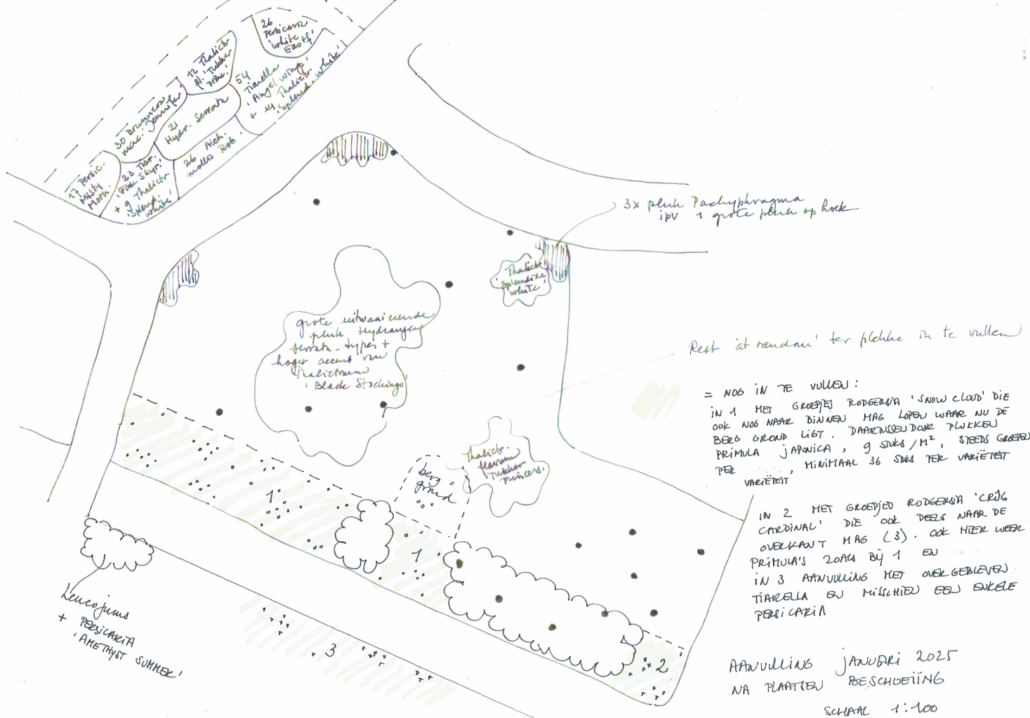 26
Persicaria
'White
East'
12 Thalictr.
fl. 'Tukker
Princ.'
54
Tiarella
'Angel Wings'
+ 14 Thalictr.
'Splendide White'
30 Brunnera
mac. 'Jennifer'
21
Hydr. Serrata
26 Alch.
mollis Rob.
17 Persic.
Misty
Morn.
23 Tiar.
'Pink Skyr.'
+ 9 Thalictr.
'Splend.
White'
3x pluk Pachyphragma
ipv 1 grote pluk op hoek
Thalictr.
'Splendide
White'
grote uitwaaierende
pluk Hydrangea
serrata-types +
hoger accent van
Thalictrum
'Black Stockings'
Rest 'at random' ter plekke in te vullen
= NOG IN TE VULLEN:
IN 1 MET GROEPJES RODGERSIA 'SNOW CLOUD' DIE
OOK NOG NAAR BINNEN MAG LOPEN WAAR NU DE
BERG GROND LIGT. DAARTUSSENDOOR PLUKKEN
PRIMULA JAPONICA, 9 STUKS/M², STEEDS GROEPEN
PER , MINIMAAL 36 STUKS PER VARIËTEIT
VARIËTEIT
Thalictr.
flavum
Tukker
Princess.
berg
grond
1
1
IN 2 MET GROEPJES RODGERSIA 'CRUG
CARDINAL' DIE OOK DEELS NAAR DE
OVERKANT MAG (3). OOK HIER WEER
PRIMULA'S ZOALS BIJ 1 EN
IN 3 AANVULLING MET OVERGEBLEVEN
TIARELLA EN MISSCHIEN EEN ENKELE
PERSICARIA
Leucojums
+ PERSICARIA
'AMETHYST SUMMER'
3
2
AANVULLING JANUARI 2025
NA PLAATSEN BESCHOEIING
SCHAAL 1:100